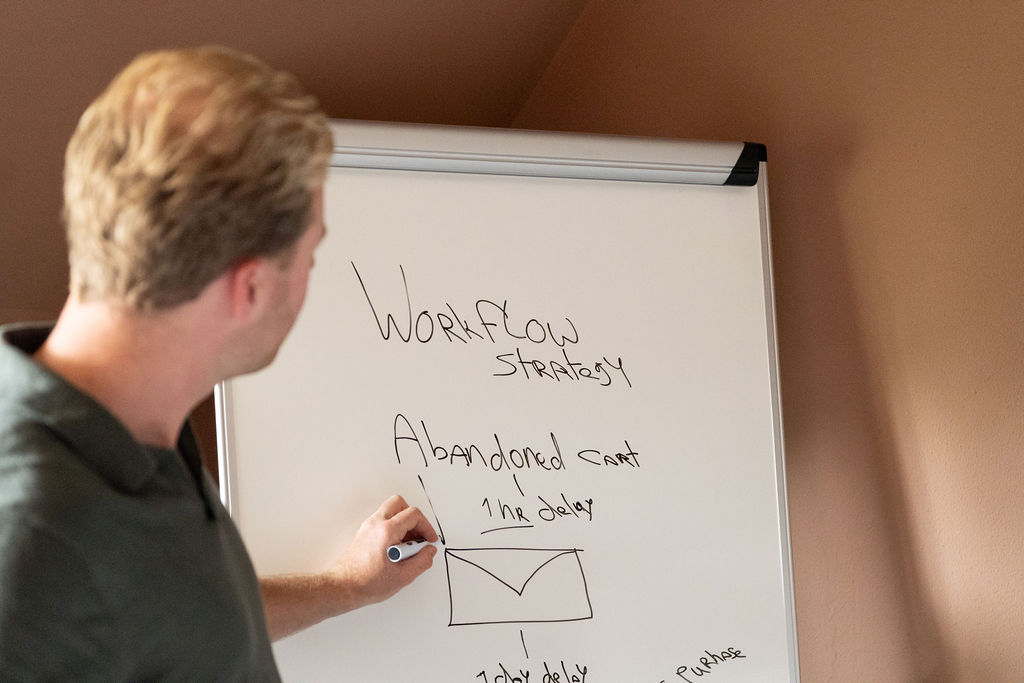 Workflow
strategy
Abandoned cart
1 hr delay
1 day delay
Purhase